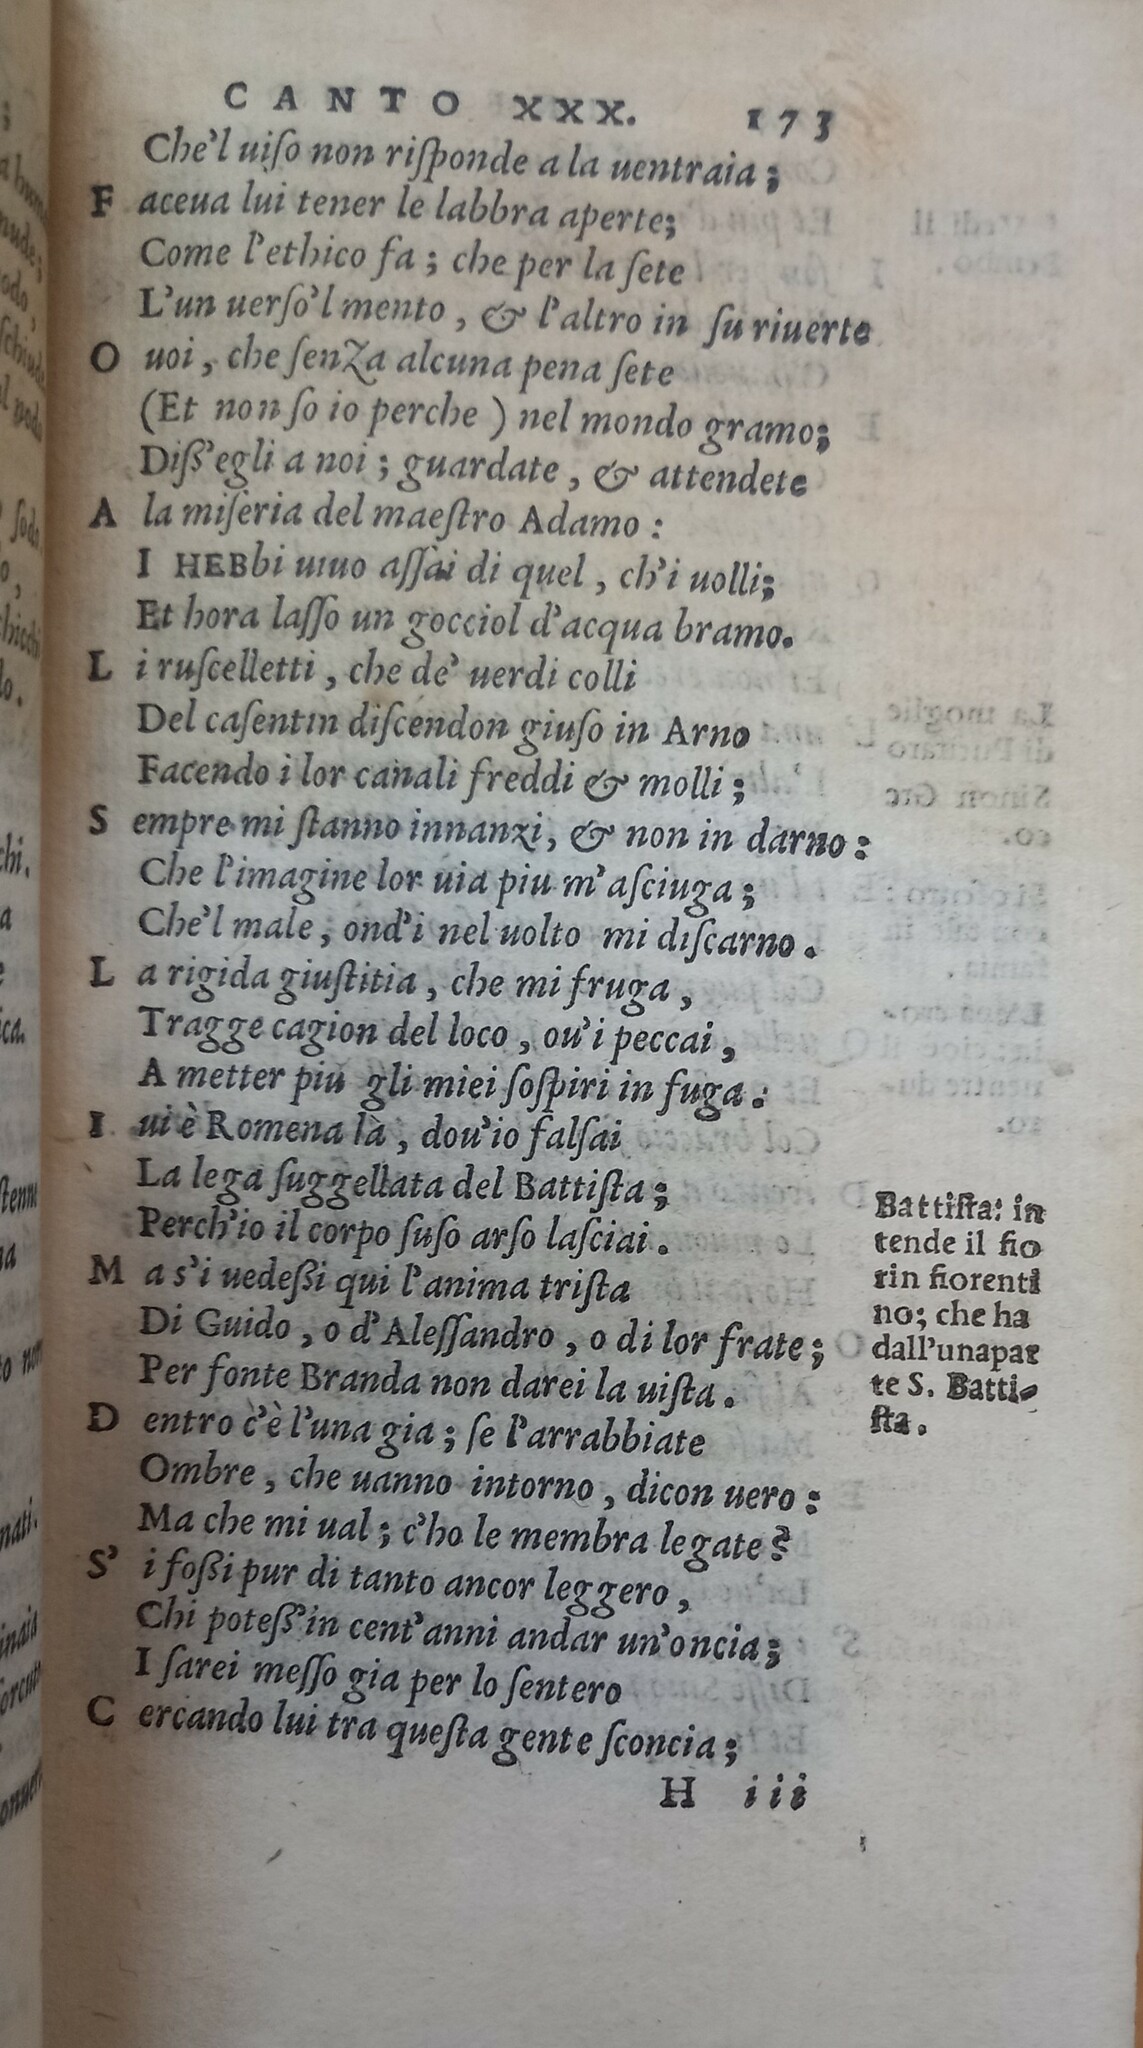 CANTO XXX. 173
Che'l uiſo non riſponde a la uentraia;
F aceua lui tener le labbra aperte;
Come l'ethico fa; che per la ſete
L'un uerſo'l mento, & l'altro in ſu riuerte
O uoi, che ſenza alcuna pena ſete
(Et non ſo io perche) nel mondo gramo;
Diſſ'egli a noi; guardate, & attendete
A la miſeria del maeſtro Adamo:
I HEBbi uiuo aſſai di quel, ch'i uolli;
Et hora laſſo un gocciol d'acqua bramo.
L i ruſcelletti, che de' uerdi colli
Del caſentin diſcendon giuſo in Arno
Facendo i lor canali freddi & molli;
S empre mi ſtanno innanzi, & non in darno:
Che l'imagine lor uia piu m'aſciuga;
Che'l male, ond'i nel uolto mi diſcarno.
L a rigida giuſtitia, che mi fruga,
Tragge cagion del loco, ou'i peccai,
A metter piu gli miei ſoſpiri in fuga.
I ui è Romena là, dou'io falſai
La lega ſuggellata del Battiſta;
Perch'io il corpo ſuſo arſo laſciai.
M a s'i uedeßi qui l'anima triſta
Di Guido, o d'Aleſſandro, o di lor frate;
Per fonte Branda non darei la uiſta.
D entro c'è l'una gia; ſe l'arrabbiate
Ombre, che uanno intorno, dicon uero:
Ma che mi ual; c'ho le membra legate?
S' i foßi pur di tanto ancor leggero,
Chi poteß'in cent'anni andar un'oncia;
I ſarei meſſo gia per lo ſentero
C ercando lui tra queſta gente ſconcia;
H iii
Battiſta: in
tende il fio
rin fiorenti
no; che ha
dall'unapar
te S. Batti-
ſta.